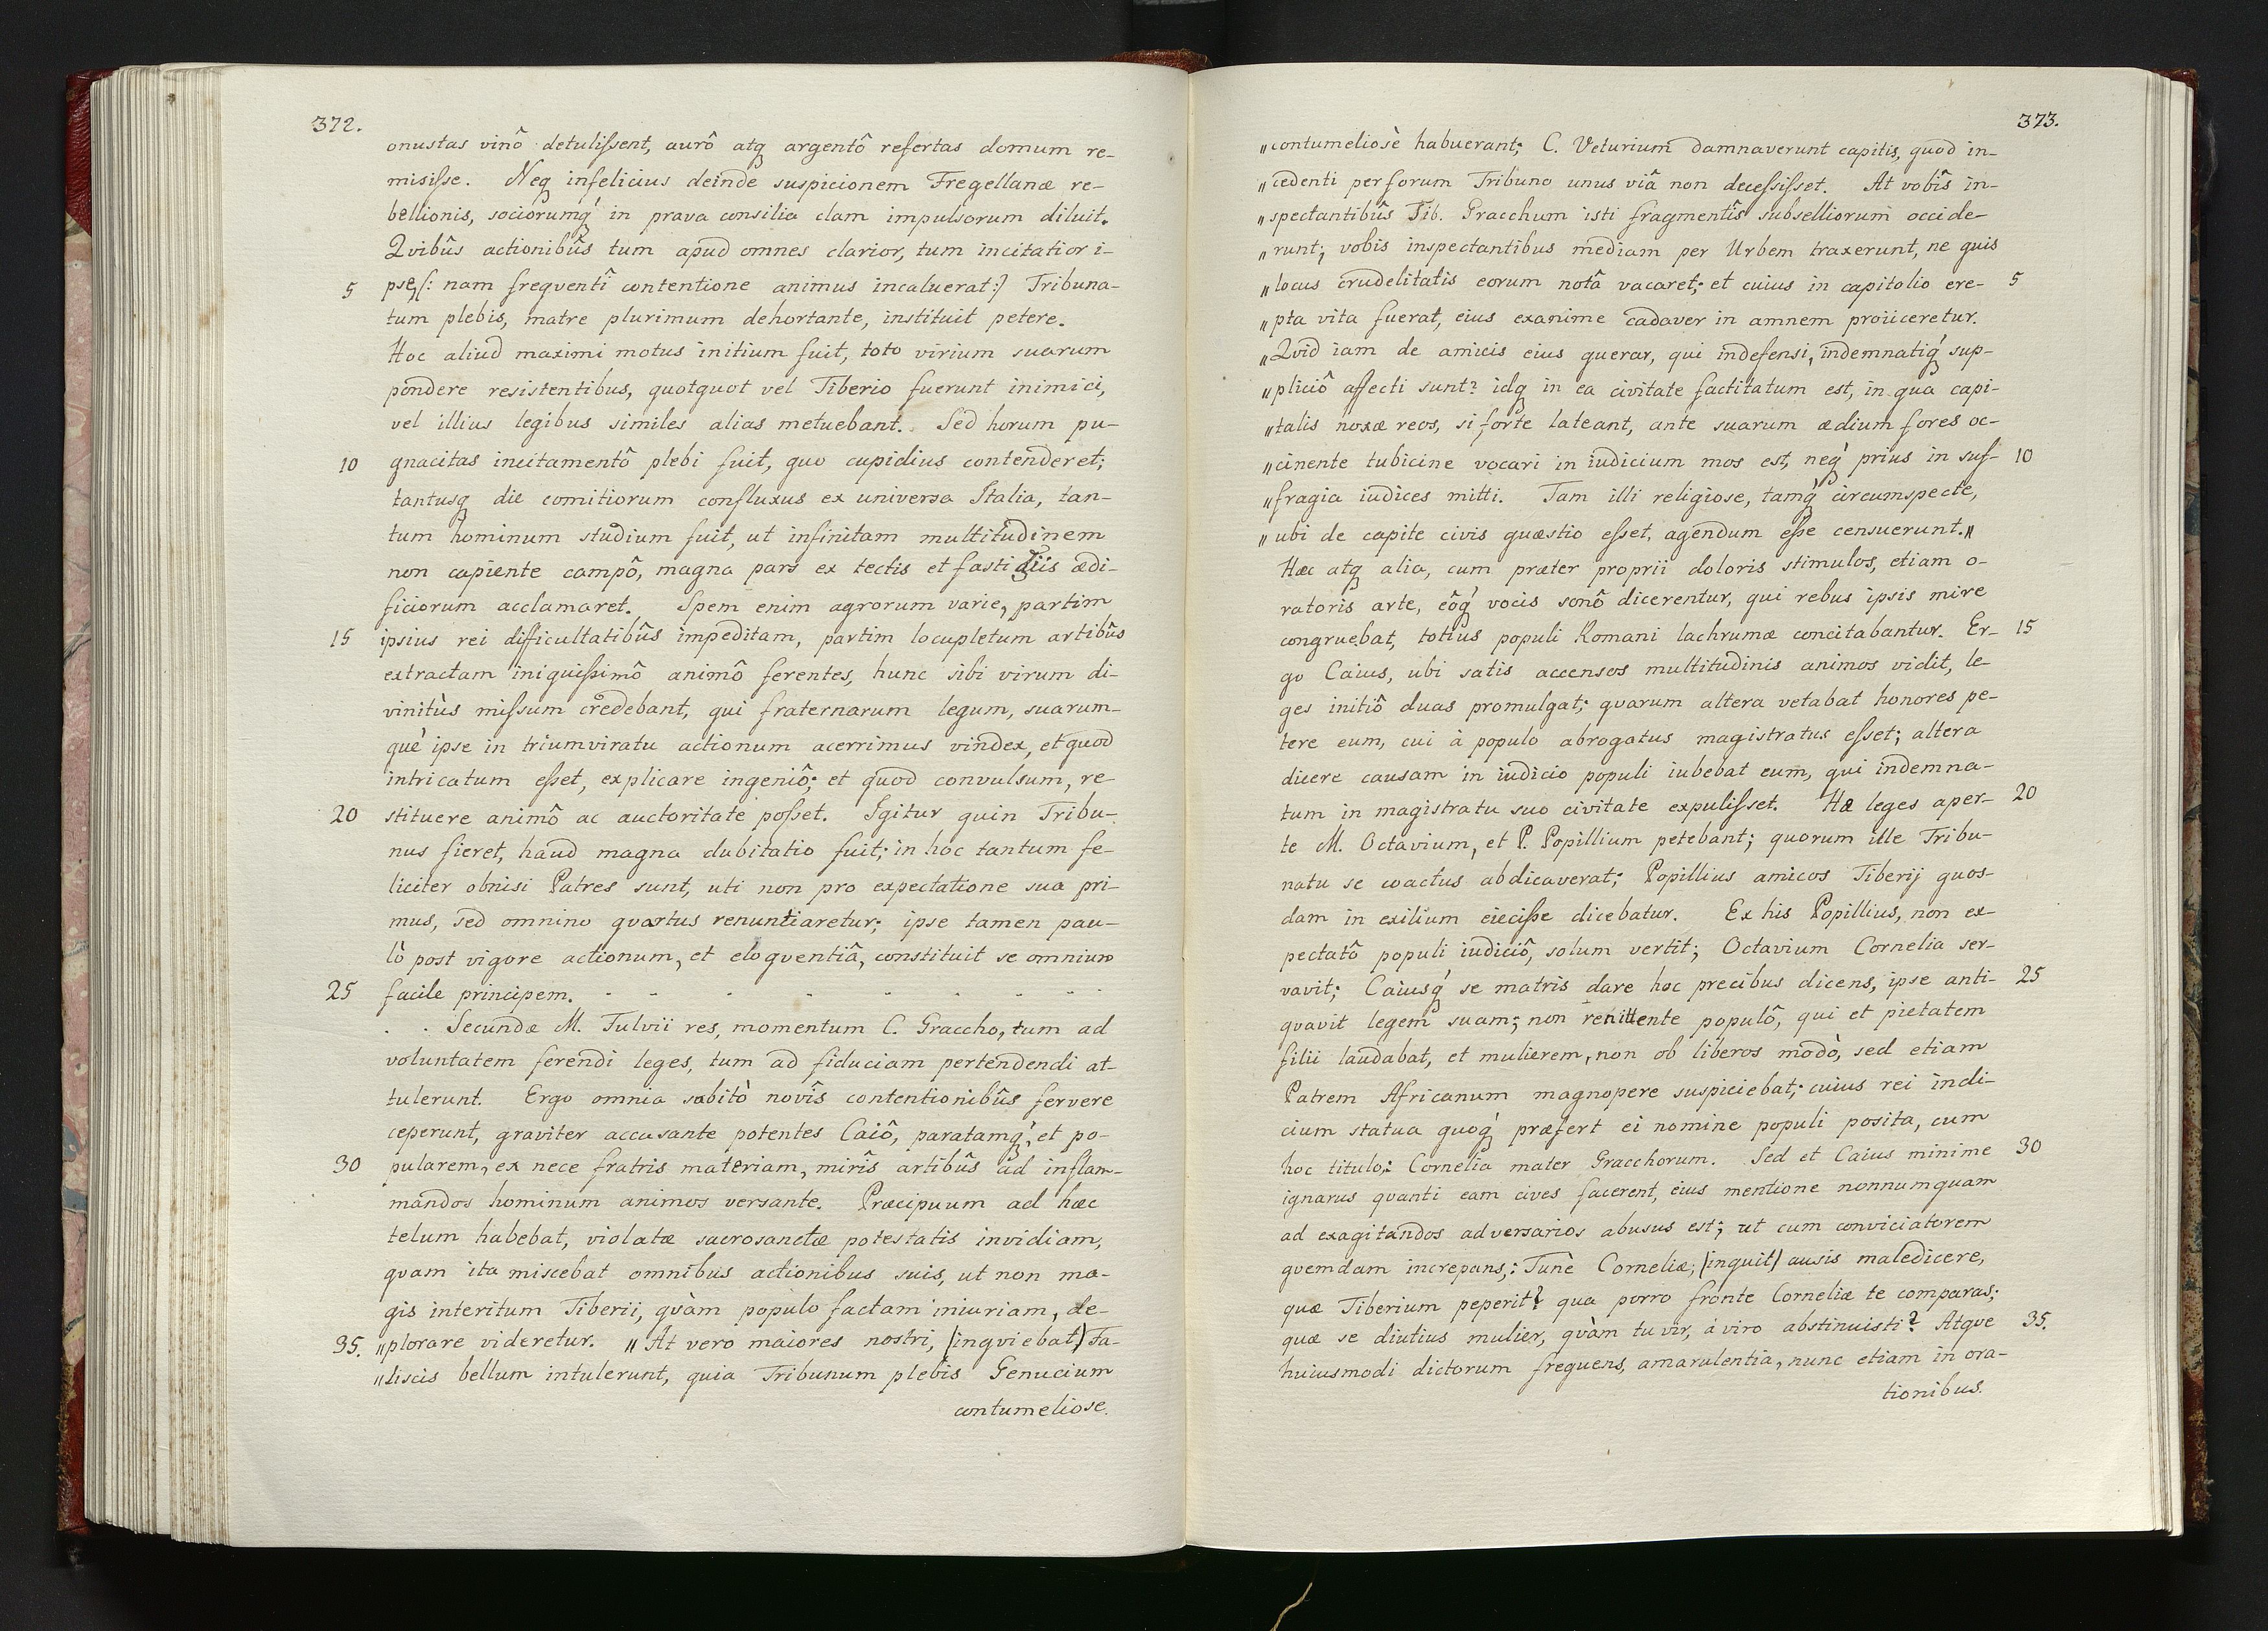 372.
onustas vinô detulissent, aurô atq argentô refertas domum re-
misisse. Neq infelicius deinde suspicionem Fregellanæ re-
bellionis, sociorumq́ in prava consilia clam impulsorum diluit.
Qvibûs actionibûs tum apud omnes clarior, tum incitatior i-
5 pse, (: nam freqventî contentione animus incaluerat:) Tribuna-
tum plebis, matre plurimum dehortante, instituit petere.
Hoc aliud maximi motus initium fuit, toto virium suarum
pondere resistentibus, quotquot vel Tiberio fuerunt inimici,
vel illius legibus similes alias metuebant. Sed horum pu-
10 gnacitas incitamentô plebi fuit, quo cupidius contenderet;
tantusq die comitiorum confluxus ex universa Italia, tan-
tum hominum studium fuit, ut infinitam multitudinem
non capiente campô, magna pars ex tectis et fastigiis ædi-
ficiorum acclamaret. Spem enim agrorum varie, partim
15 ipsius rei difficultatibûs impeditam, partim locupletum artibûs
extractam iniquissimô animô ferentes, hunc sibi virum di-
vinitùs missum credebant, qui fraternarum legum, suarum-
què ipse in triumviratu actionum acerrimus vindex, et quod
intricatum esset, explicare ingeniô; et quod convulsum, re-
20 stituere animô ac auctoritate posset. Igitur quin Tribu-
nus fieret, haud magna dubitatio fuit; in hoc tantum fe-
liciter obnisi Patres sunt, uti non pro expectatione sua pri-
mus, sed omnino qvartus renuntiaretur; ipse tamen pau-
lò post vigore actionum, et eloqventiâ, constituit se omnium
25 facile principem. - - - - - - - - - -
. . Secundæ M. Fulvii res, momentum C. Graccho, tum ad
voluntatem ferendi leges, tum ad fiduciam pertendendi at-
tulerunt. Ergo omnia sabitò novîs contentionibûs fervere
ceperunt, graviter accusante potentes Caiô, paratamq́, et po-
30 pularem, ex nece fratris materiam, mirîs artibûs ad inflam-
mandos hominum animos versante. Præcipuum ad hæc
telum habebat, violatæ sacrosanctæ potestatis invidiam,
qvam ita miscebat omnibus actionibus suis, ut non ma-
gis interitum Tiberii, qvàm populo factam iniuriam, de-
35. „plorare videretur. „At vero maiores nostri, (inqviebat) Fa-
„liscis bellum intulerunt, quia Tribunum plebis Genucium
contumeliose.
373.
„contumeliosè habuerant; C. Veturium damnaverunt capitis, quod in-
„cedenti per forum Tribuno unus viâ non decessisset. At vobîs in-
„spectantibûs Tib. Gracchum isti fragmentîs subselliorum occide-
„runt; vobis inspectantibus mediam per Urbem traxerunt, ne quis
„locus crudelitatis eorum notâ vacaret; et cuius in capitolio ere- 5
„pta vita fuerat, eius exanime cadaver in amnem proiiceretur.
„Qvid iam de amicis eius querar, qui indefensi, indemnatiq́ sup-
„pliciô affecti sunt? idq in ea civitate factitatum est, in qua capi-
„talis noxæ reos, si forte lateant, ante suarum ædium fores oc-
„cinente tubicine vocari in iudicium mos est, neq́ prius in suf- 10
„fragia iudices mitti. Tam illi religiose, tamq́ circumspecte,
„ubi de capite civis quæstio esset, agendum esse censuerunt.„
Hæc atq alia, cum præter proprii doloris stimulos, etiam o-
ratoris arte, eôq́ vocis sonô dicerentur, qui rebus ipsis mire
congruebat, totius populi Romani lachrumæ concitabantur. Er- 15
go Caius, ubi satis accensos multitudinis animos vidit, le-
ges initiô duas promulgat; qvarum altera vetabat honores pe-
tere eum, cui à populo abrogatus magistratus esset; altera
dicere causam in iudicio populi iubebat eum, qui indemna-
tum in magistratu suo civitate expulisset. Hæ leges aper- 20
te M. Octavium, et P. Popillium petebant; quorum ille Tribu-
natu se coactus abdicaverat; Popillius amicos Tiberij quos-
dam in exilium eiecisse dicebatur. Ex his Popillius, non ex-
pectatô populi iudiciô, solum vertit; Octavium Cornelia ser-
vavit; Caiusq́ se matris dare hoc precibus dicens, ipse anti- 25
qvavit legem suam; non renittente populô, qui et pietatem
filii laudabat, et mulierem, non ob liberos modò, sed etiam
Patrem Africanum magnopere suspiciebat; cuius rei indi-
cium statua quoq́ præfert ei nomine populi posita, cum
hoc titulo: Cornelia mater Gracchorum. Sed et Caius minime 30
ignarus qvanti eam cives facerent, eius mentione nonnumquam
ad exagitandos adversarios abusus est; ut cum conviciatorem
qvemdam increpans,: Tunè Corneliæ, (inquit) ausis maledicere,
quæ Tiberium peperit? qua porro fronte Corneliæ te comparas;
quæ se diutius mulier, qvàm tu vir, á viro abstinuisti? Atqve 35.
huiusmodi dictorum frequens, amarulentia, nunc etiam in ora-
tionibus.